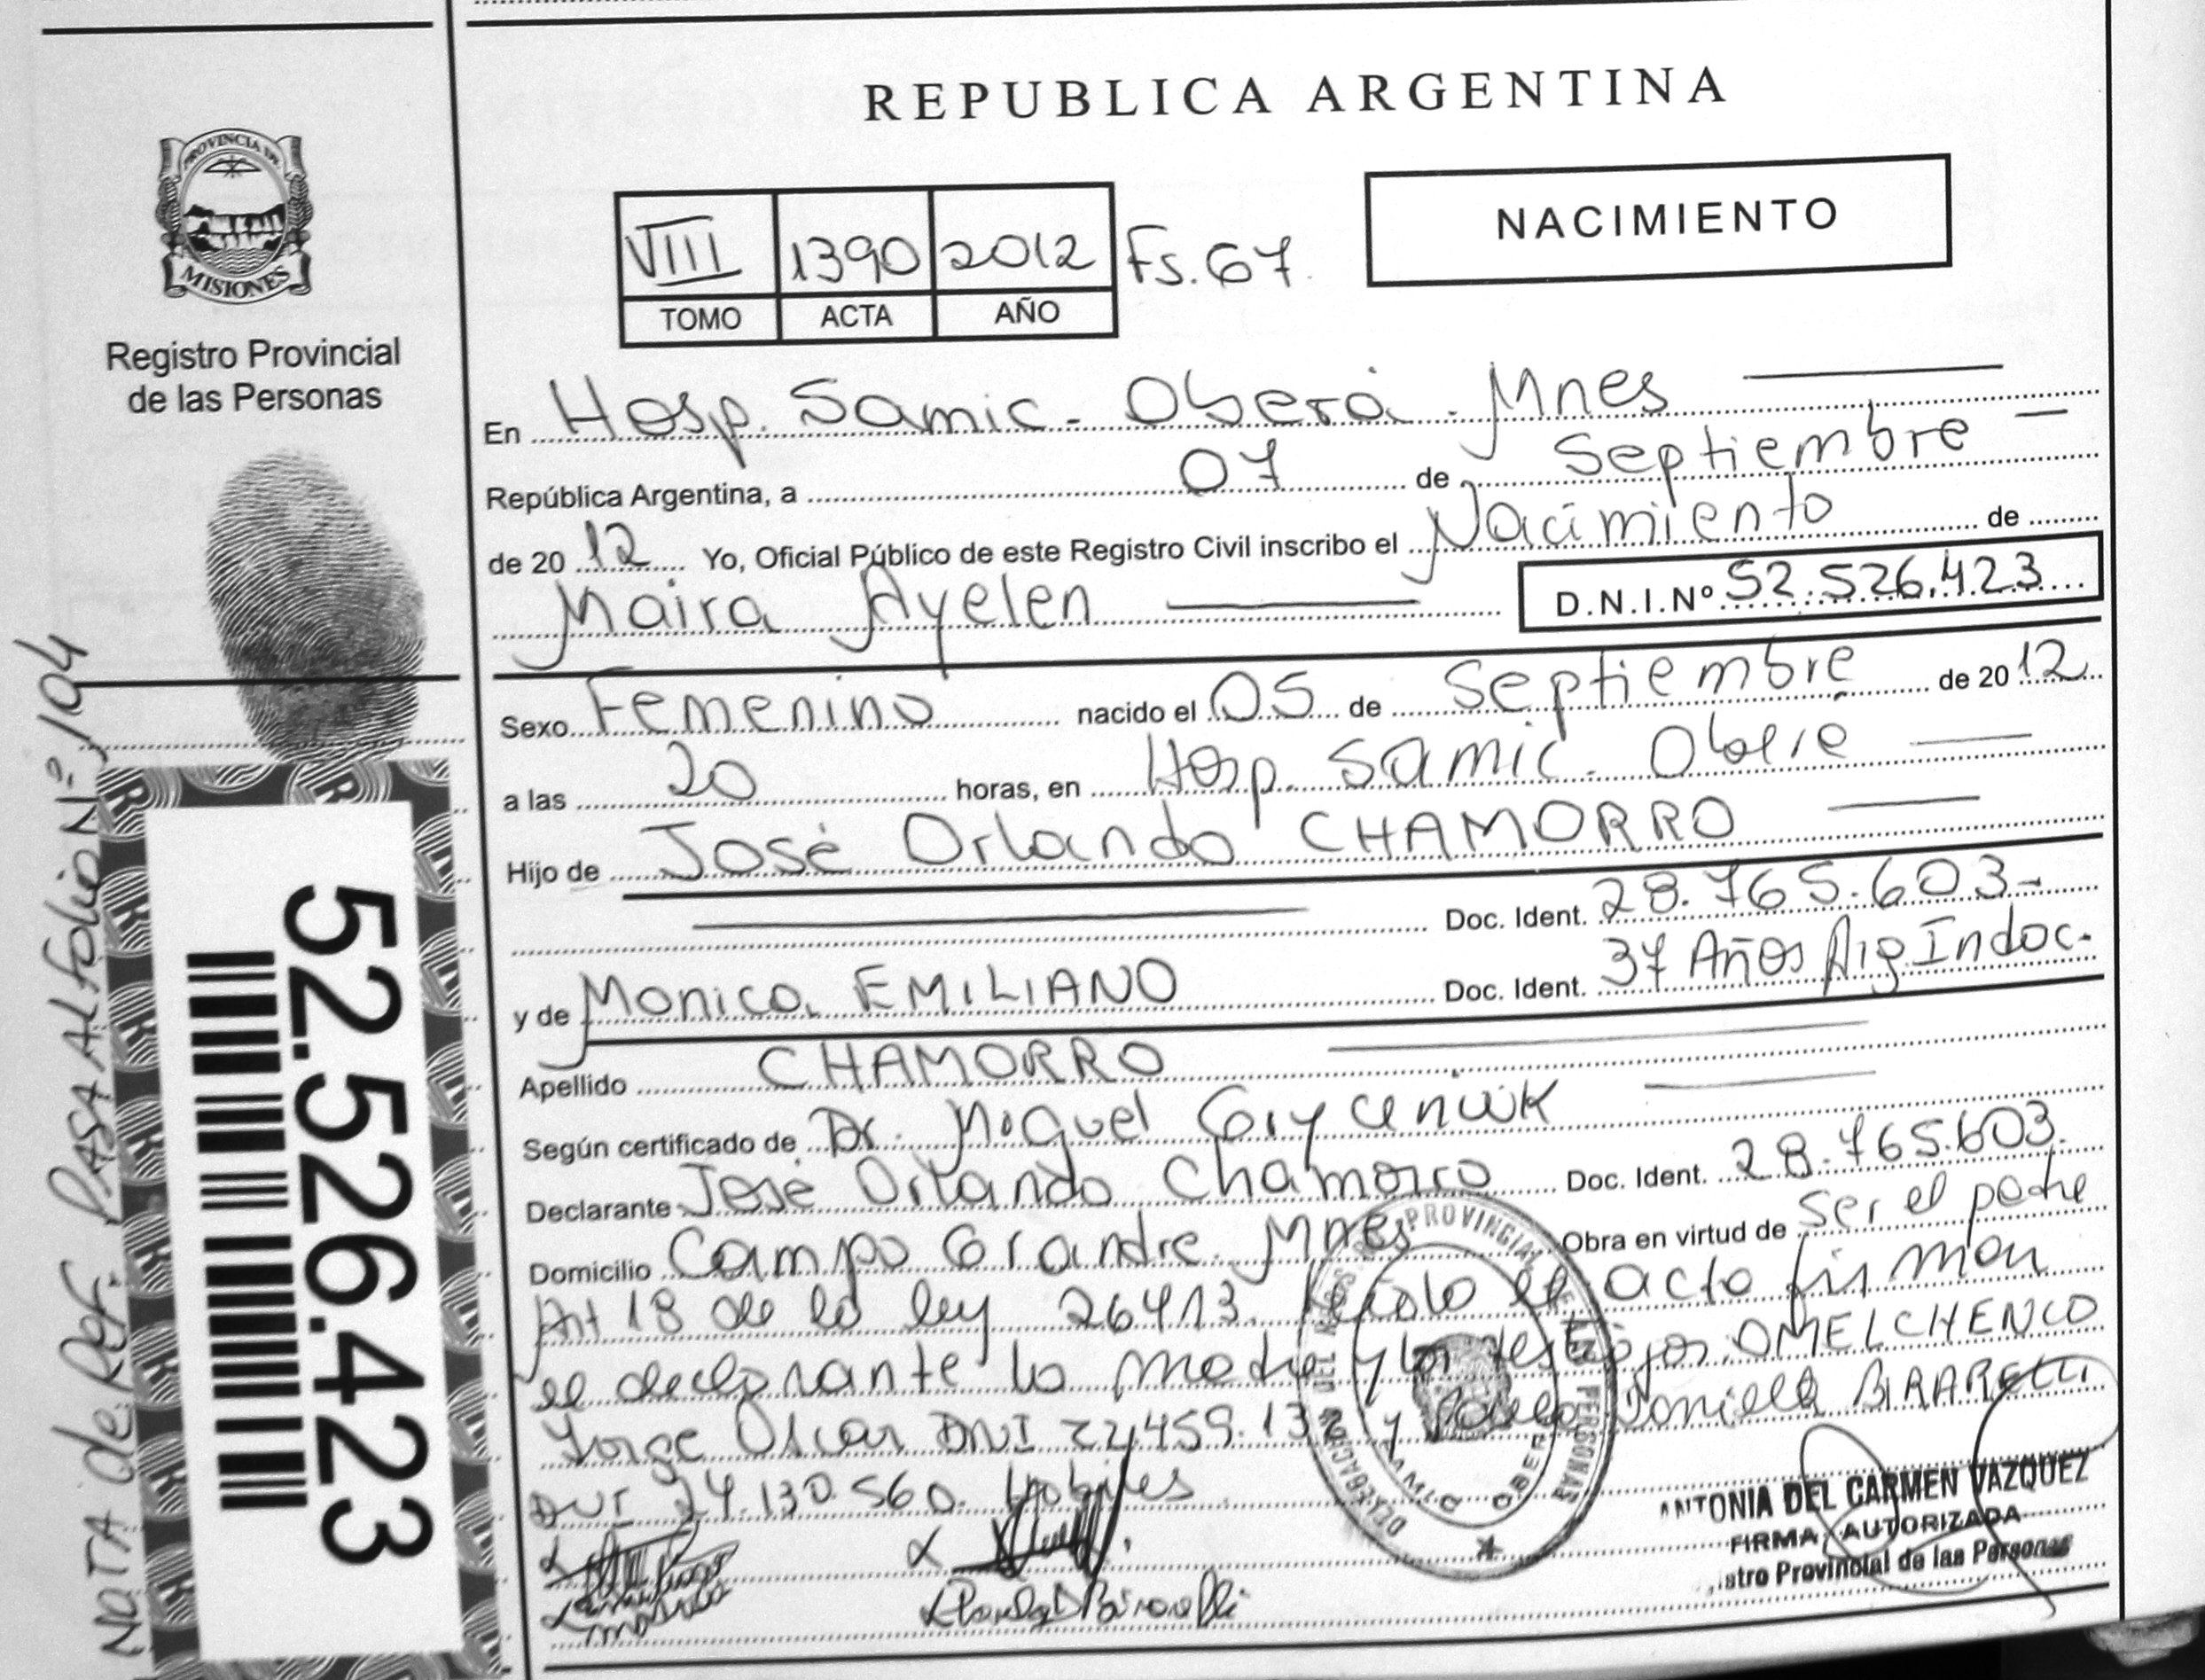 REPUBLICA ARGENTINA
PROVINCIA DE
MISIONES
Registro Provincial
de las Personas
VIII 1390 2012 Fs. 67.
TOMO ACTA AÑO
NACIMIENTO
En Hosp. Samic - Oberá - Mnes
República Argentina, a 07 de Septiembre
de 2012 Yo, Oficial Público de este Registro Civil inscribo el Nacimiento de
Maira Ayelen D.N.I.Nº 52.526.423
Sexo Femenino nacido el 05 de Septiembre de 2012
a las 20 horas, en Hosp. Samic -
Hijo de José Orlando CHAMORRO
Doc. Ident. 28.765.603-
y de Monica EMILIANO Doc. Ident. 37 Años Arg Indoc.
Apellido CHAMORRO
Según certificado de Dr. Miguel
Declarante José Orlando Chamorro Doc. Ident. 28.765.603.
Domicilio Campo Grande - Mnes Obra en virtud de ser el padre
Art 18 de la ley 26413. el acto firman
el declarante la madre y los testigos OMELCHENCO
Jorge Oscar DNI y Daniela
DNI 24.130.560. Habiles
PROVINCIAL DE LAS PERSONAS
ANTONIA DEL CARMEN VAZQUEZ
FIRMA AUTORIZADA
istro Provincial de las Personas
NOTA de Ref. PASA AL folio Nº 104
52.526.423